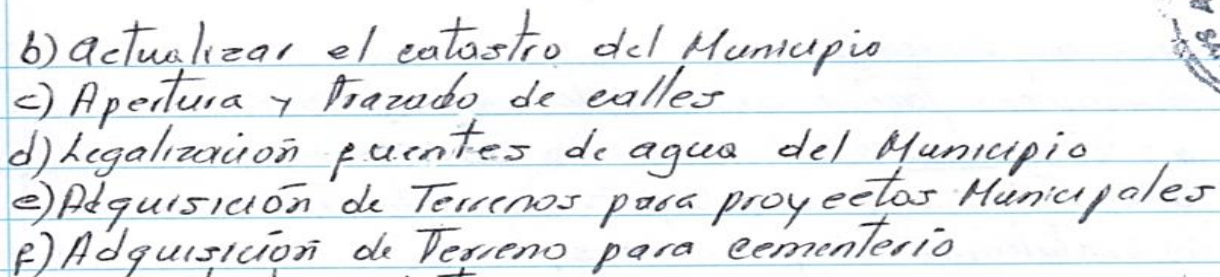 b) actualizar el catastro del Municipio
c) Apertura y Trazado de calles
d) Legalización fuentes de agua del Municipio
e) Adquisición de Terrenos para proyectos Municipales
f) Adquisición de Terreno para cementerio